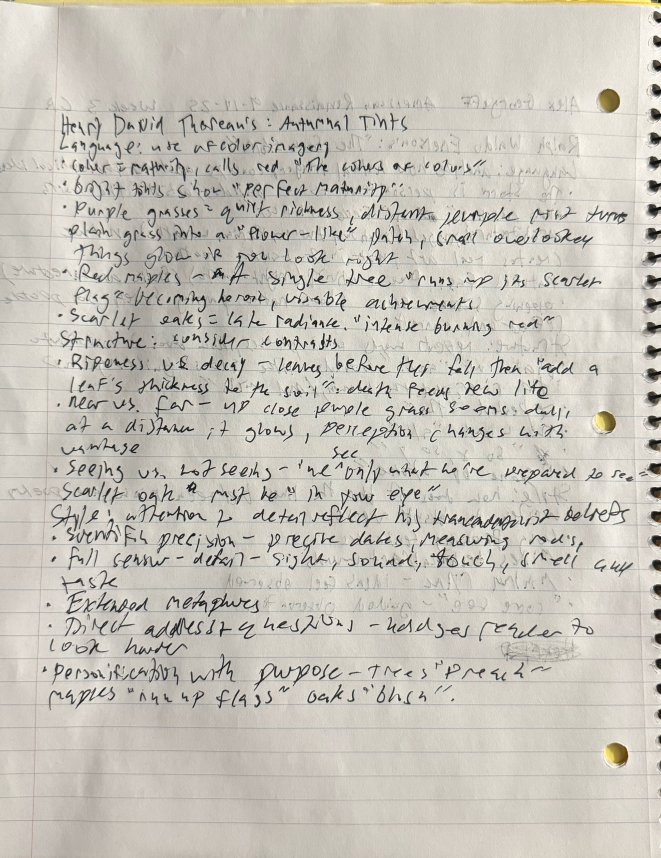 Henry David Thoreau's: Autumnal Tints
Language: use of color imagery
• color = maturity, calls red "the color of colors"
• bright tints show "perfect maturity"
• Purple grasses = quiet richness, distant purple mist turns
plain grass into a "flower-like" patch, small overlooked
things glow if you look right
• Red maples - A single tree "runs up its scarlet
flag" = becoming heroic, visable achievements
• Scarlet oaks = late radiance. "intense burning red"
Structure: consider contrasts
• Ripeness vs decay - leaves before they fall then "add a
leaf's thickness to the soil" death feeds new life
• near vs. far - up close purple grass seems dull,
at a distance it glows, perception changes with
vantage
• Seeing vs. not seeing - "we see only what we're prepared to see"
Scarlet oak must be "in your eye"
Style: attention to detail reflect his beliefs
• Scientific precision - precise dates, measuring rods,
• full sensory - detail - sight, sound, touch, smell and
taste
• Extended metaphors
• Direct address + questions - nudges reader to
look harder
• Personification with purpose - trees "preach"
maples "run up flags" oaks "blush".